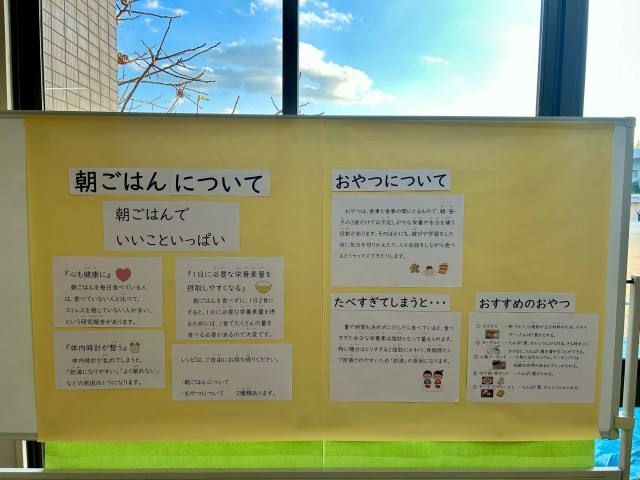 朝ごはんについて
朝ごはんで
いいこといっぱい
『心も健康に』
朝ごはんを毎日食べている人
は、食べていない人と比べて、
ストレスを感じていない人が多い、
という研究報告があります。
『1日に必要な栄養素量を
摂取しやすくなる』
朝ごはんを食べずに、1日2食に
すると、1日に必要な栄養素量を摂
るためには、1食でたくさんの量を
食べる必要があるので大変です。
『体内時計が整う』
体内時計が乱れてしまうと、
「肥満になりやすい」「よく眠れない」
などの原因の1つになります。
レシピは、ご自由にお持ち帰りください。
・朝ごはんについて
・おやつについて 2種類あります。
おやつについて
おやつは、食事と食事の間にとるもので、朝・昼・
夕の3食だけでは不足しがちな栄養や水分を補う
役割があります。そのほかにも、遊びや学習をした
後に気分を切りかえたり、人と会話をしながら食べ
るとリラックスできたりします。
たべすぎてしまうと・・・
量や時間も決めずにだらだら食べていると、食べ
すぎた余分な栄養は脂肪となって蓄えられます。
特に糖分はとりすぎると脂肪にかわり、体脂肪とし
て貯蔵されやすいため「肥満」の原因になります。
おすすめのおやつ
① カステラ
② ヨーグルト